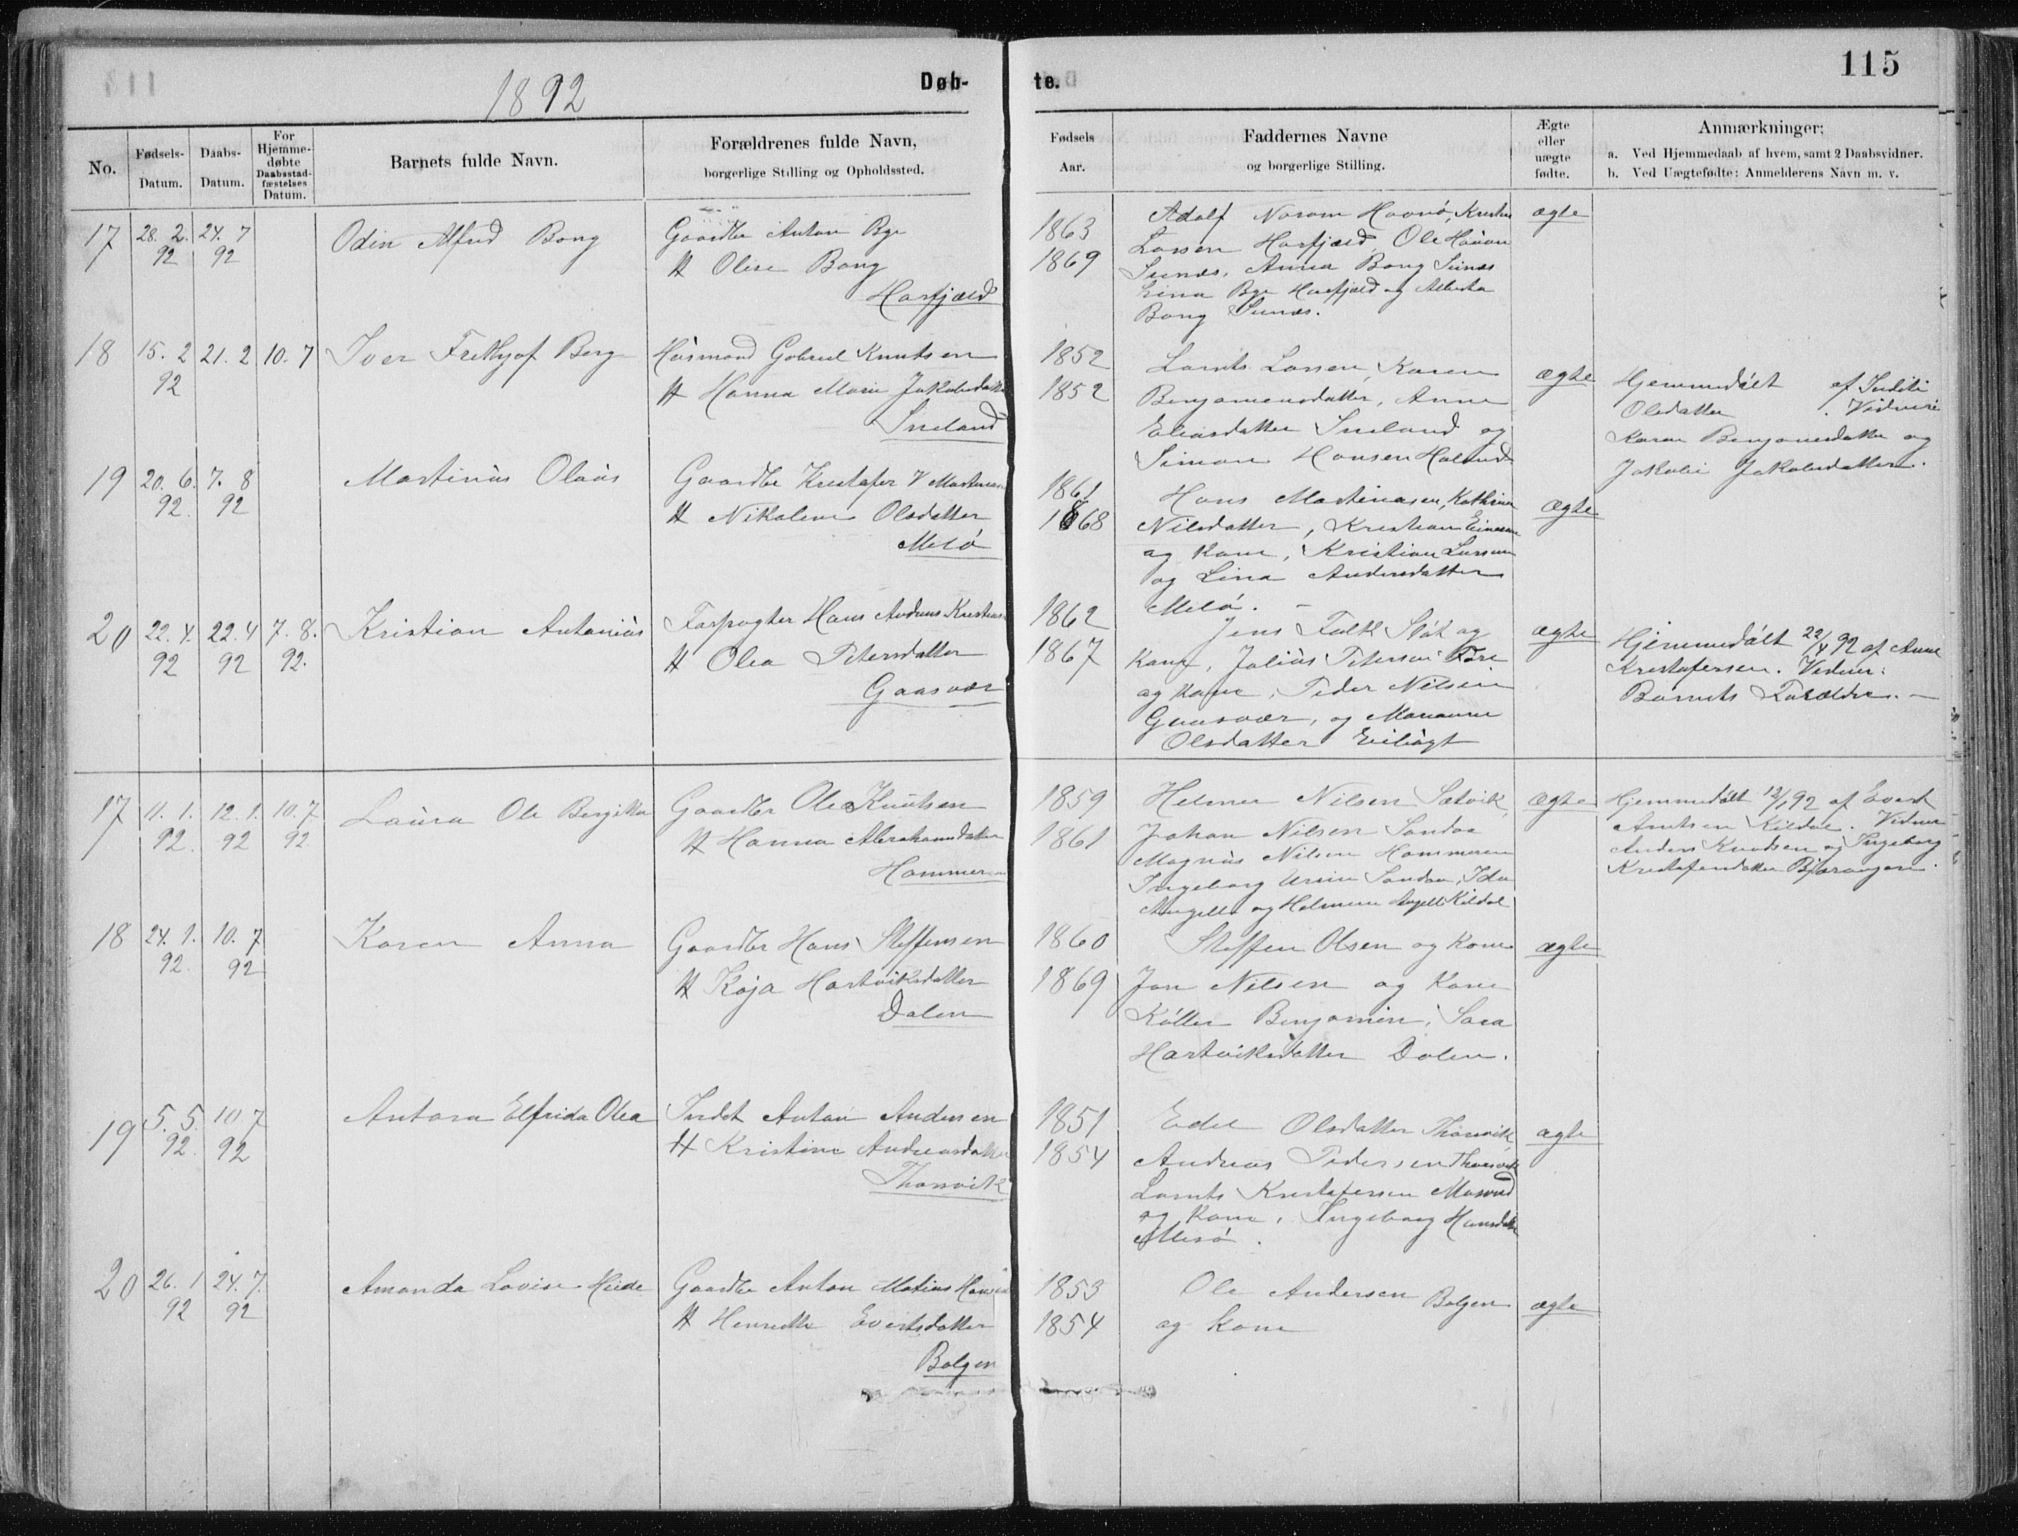 115
1892
Døb-
te.
No.
Fødsels-
Datum.
Daabs-
Datum.
For
Hjemme-
døbte
Daabsstad-
fæstelses
Datum.
Barnets fulde Navn.
Forældrenes fulde Navn,
borgerlige Stilling og Opholdssted.
Fødsels
Aar.
Faddernes Navne
og borgerlige Stilling.
Ægte
eller
uægte
fødte.
Anmærkninger:
a. Ved Hjemmedaab af hvem, samt 2 Daabsvidner.
b. Ved Uægtefødte: Anmelderens Navn m. v.
17
28. 2.
92
24. 7
92
Odin Alfred Bong
Gaardbr Anton Bye
H Olise Bong
Harfjæld
1863
1869
Adolf Havnø,
Larsen Harfjæld, Ole
Sunæs, Anna Bong Sunæs
Lina Bye Harfjæld og
Bong Sunæs.
ægte
18
15. 2
92
21. 2
10. 7
Iver Frithjof Berg
Husmand Gabriel Knutsen
H Hanna Marie Jakobsdatter
Sneland
1852
1852
Lornts Larsen, Karen
Benjaminsdatter, Anne
Eliasdatter Sneland og
Simon Hansen
ægte
Hjemmedøbt af
Olsdatter. Vidner:
Karen Benjaminsdatter og
Jakobsdatter.
19
20. 6.
92.
7. 8
92
Martinus Olaus
Gaardbr Kristofer V Martinsen
H Nikoline Olsdatter
Melø
1861
1868
Hans Martinasen,
Nilsdatter, Kristian
og Kone, Kristian Larsen
og Lina Andersdatter
Melø. –
ægte
20
22. 4.
92
22. 4
92
7. 8.
92.
Kristian Antonius
Forpagter Hans Andreas
H Olea Petersdatter
Gaasvær
1862
1867
Jens Falk Støt og
Kone, Julius Petersen Fore
og Kone, Peder Nilsen
Gaasvær, og Marianne
Olsdatter
ægte
Hjemmedøbt 22/4 92 af Anne
Kristofersen. Vidner:
Barnets Forældre. –
17
11. 1.
92.
12. 1.
92
10. 7
92
Laura Ole Bergitta
Gaardbr Ole Knutsen
H Hanna Abrahamsdatter
Hammeren
1859
1861
Helmer Nilsen Sætvik,
Johan Nilsen Sandaa
Magnus Nilsen Hammeren
Ingeborg Ursin Sandaa, Ida
Angell og Angell Kildal
ægte
Hjemmedøbt 12/1 92 af Evert
Arntsen Kildal. Vidner
Anders Knudsen og Ingeborg
Kristofersdatter
18
24. 1.
92.
10. 7
92
Karen Anna
Gaardbr Hans Steffensen
H Kaja Hartviksdatter
Dalen
1860
1869
Steffen Olsen og Kone
Jon Nilsen og Kone
Benjamin, Sara
Hartviksdatter Dalen.
ægte
19
5. 5.
92.
10 7
92
Antora Elfrida Olea
Indst Anton Andersen
H Kristine Andreasdatter
Thorsvik
1851
1854
Edel Olsdatter Thorsvik
Andreas Pedersen Thorsvik
Lornts Kristofersen
og Kone, Ingeborg Hansdatter
Mesø.
ægte
20
26. 1
92
24. 7.
92
Amanda Lovise Heide
Gaardbr Anton Matias Hansen
H Henrette Evertsdatter
Bolgen
1853
1854
Ole Andersen Bolgen
og Kone
ægte